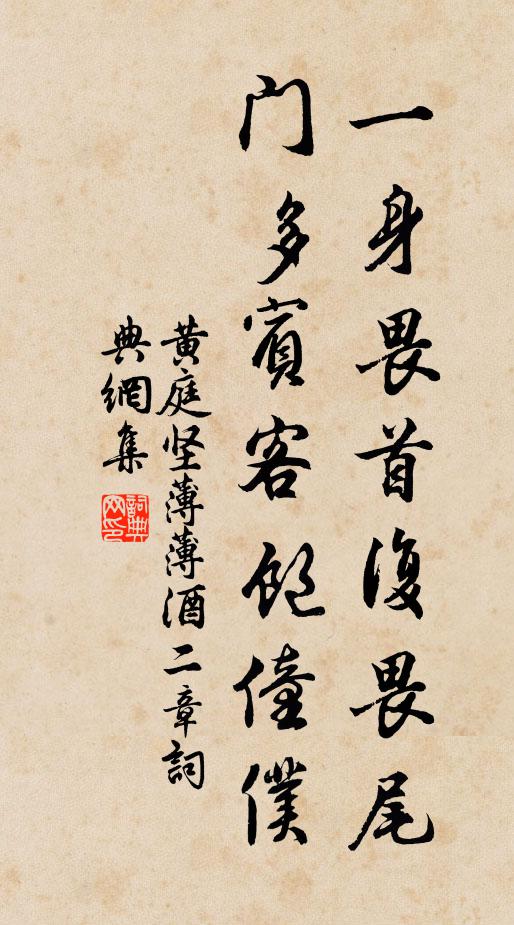 一身畏首復畏尾
門多賓客飽僮僕
黄庭坚薄薄酒二章詞
典網集
詞典网印